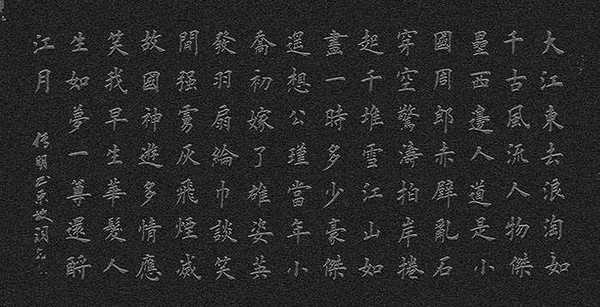 大江東去浪淘如
千古風流人物傑
壘西邊人道是小
國周郎赤壁亂石
穿空驚濤拍岸捲
起千堆雪江山如
畫一時多少豪傑
遥想公瑾當年小
喬初嫁了雄姿英
發羽扇綸巾談笑
間强虜灰飛煙滅
故國神遊多情應
笑我早生華髮人
生如夢一尊還酹
江月
東坡詞